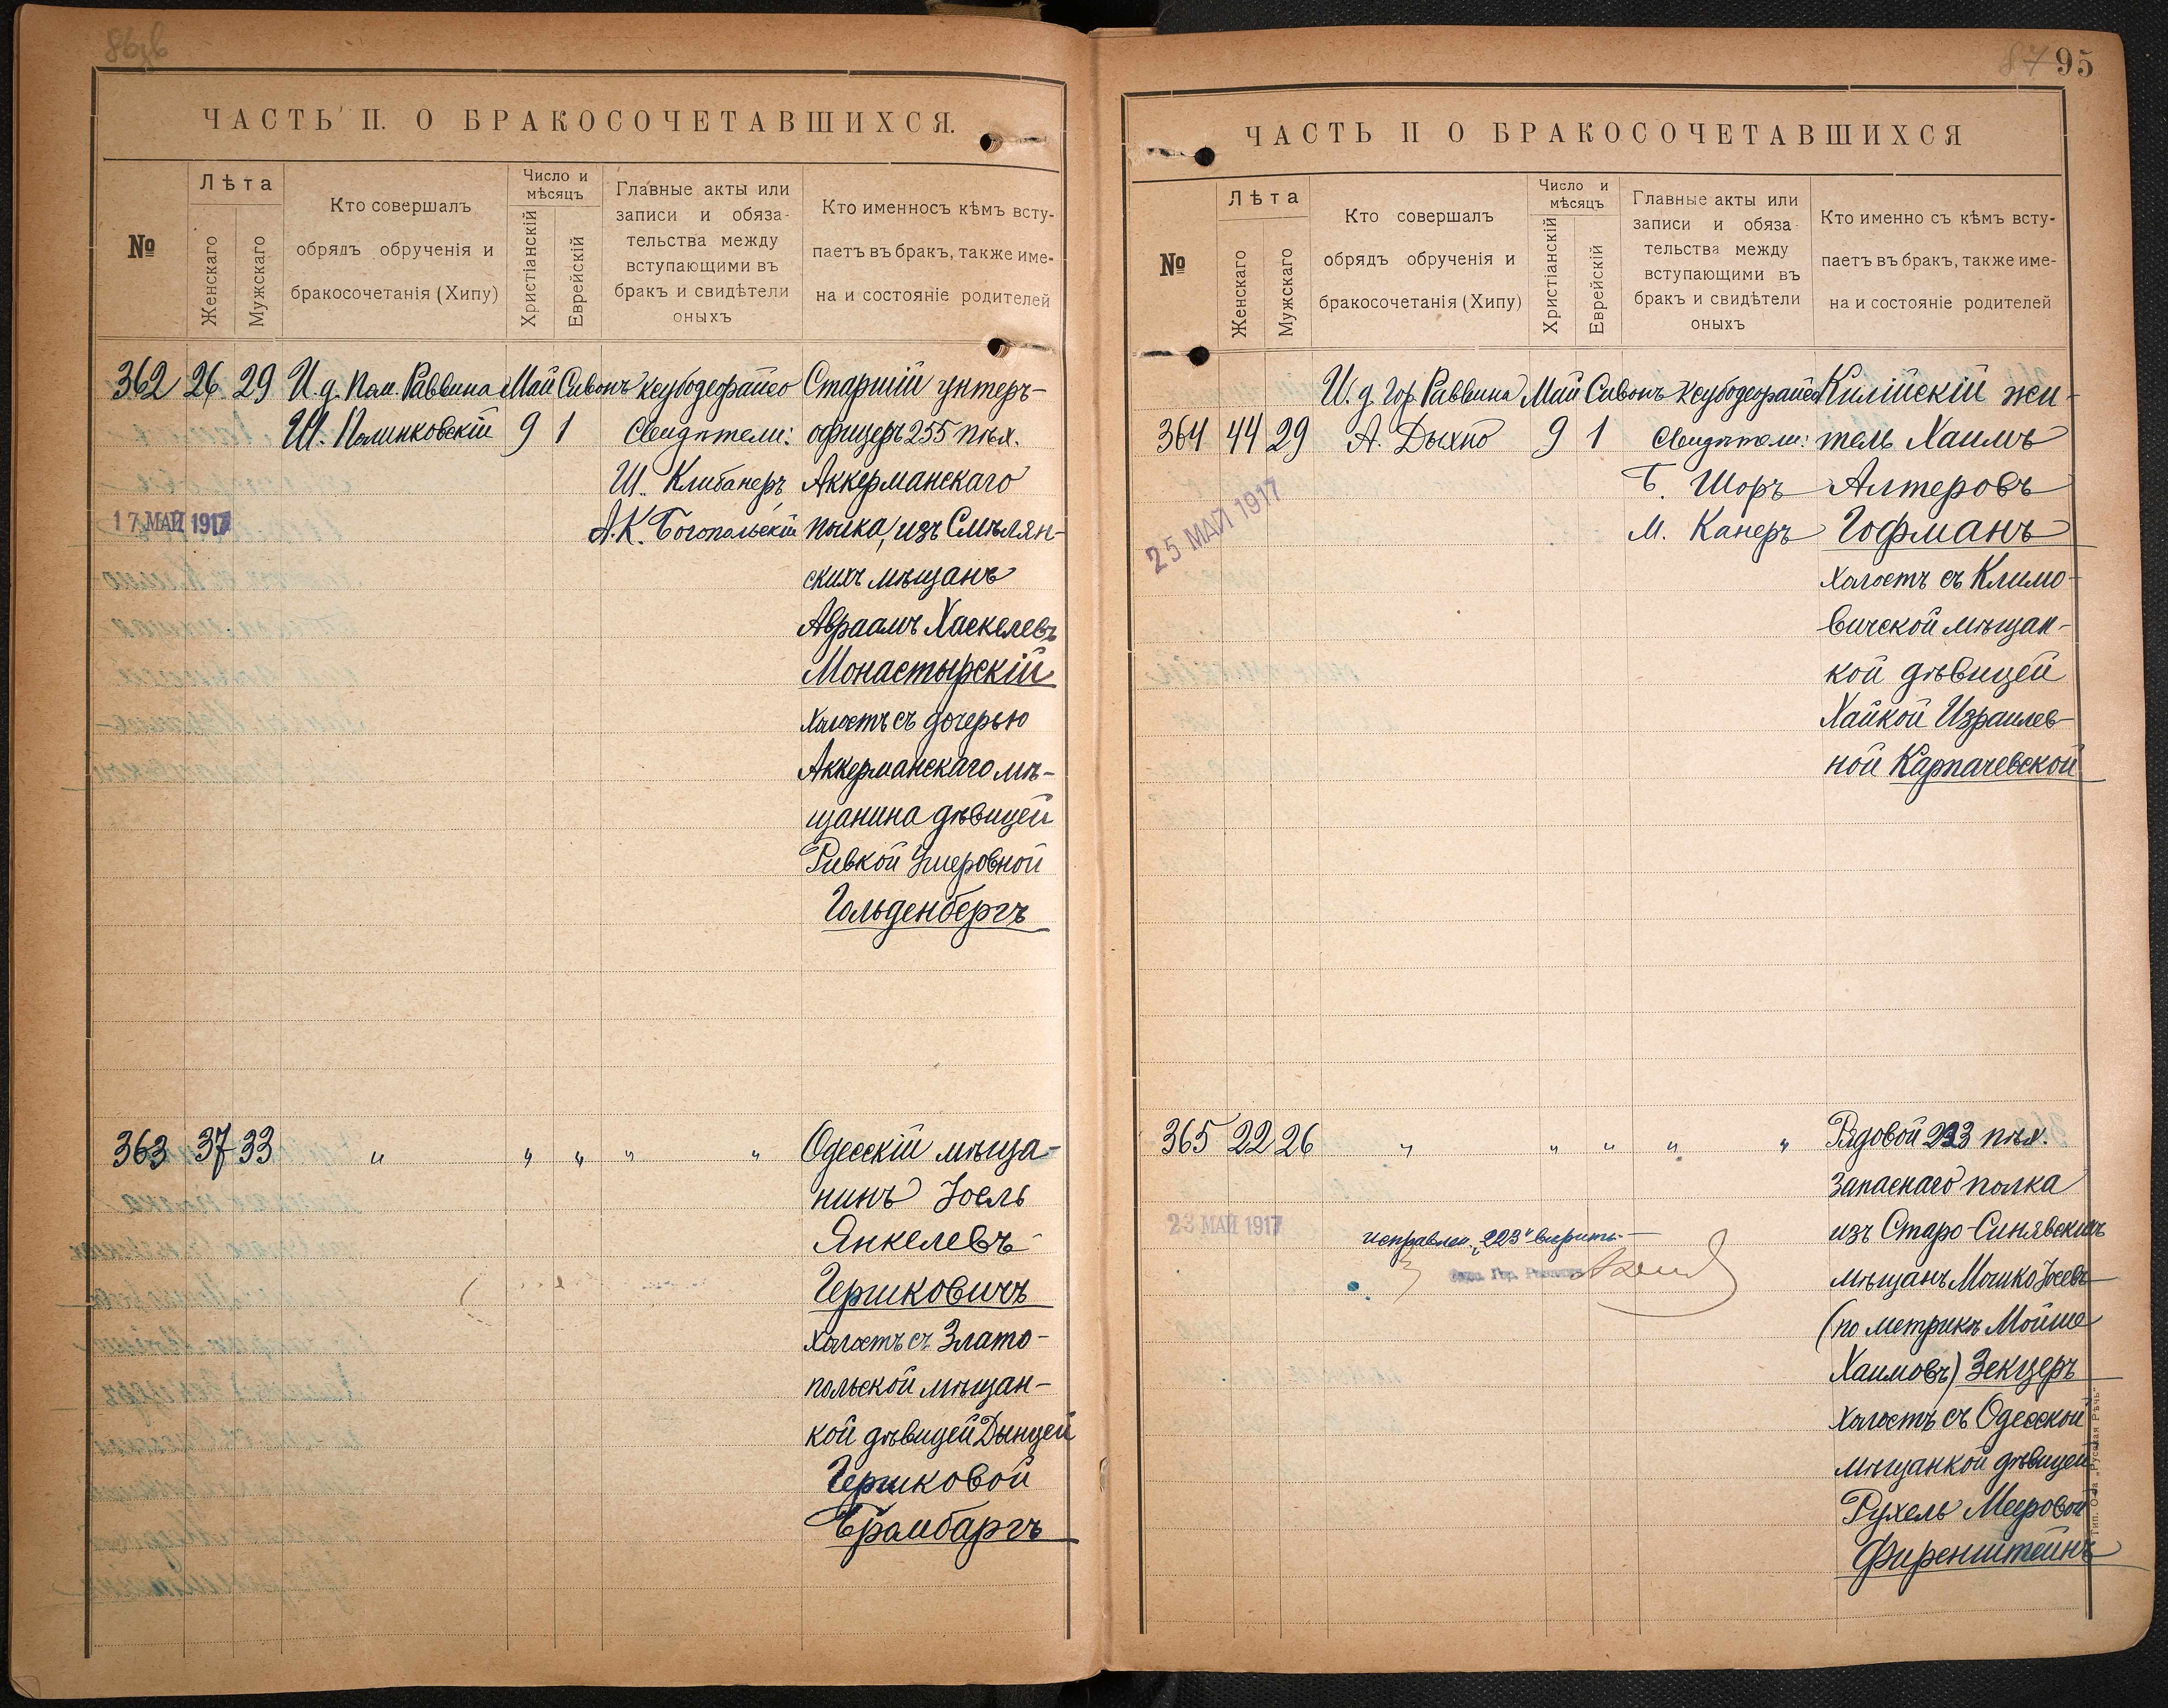 ЧАСТЬ П. О БРАКОСОЧЕТАВШИХСЯ.
№
Лѣта
Женскаго
Мужскаго
Кто совершалъ
обрядъ обрученія и
бракосочетанія (Хипу)
Число и
мѣсяцъ
Христіанскій
Еврейскій
Главные акты или
записи и обяза-
тельства между
вступающими въ
бракъ и свидѣтели
оныхъ
Кто именносъ кѣмъ всту-
паетъ въ бракъ, также име-
на и состояніе родителей
362 26 29 И.д. Пом. Раввина Май Сивонъ Ксубодерайсо Старшій унтеръ-
Ш. Полинковскій 9 1 Свидѣтели: офицеръ 255 пѣх.
Ш. Клибанеръ Аккерманскаго
17 МАЙ 1917 А.К. Богопольскій полка, изъ Смѣлян-
скихъ мѣщанъ
Авраамъ Хаскелевъ
Монастырскій
холостъ съ дочерью
Аккерманскаго мѣ-
щанина дѣвицей
Ривкой Ушеровной
Гольденбергъ
363 37 33 " " " " " Одесскій мѣща-
нинъ Іосль
Янкелевъ
Гершковичъ
холостъ съ Злато-
польской мѣщан-
кой дѣвицей Дынцей
Гершковой
Брамбаргъ
87 95
ЧАСТЬ П О БРАКОСОЧЕТАВШИХСЯ
№
Лѣта
Женскаго
Мужскаго
Кто совершалъ
обрядъ обрученія и
бракосочетанія (Хипу)
Число и
мѣсяцъ
Христіанскій
Еврейскій
Главные акты или
записи и обяза-
тельства между
вступающими въ
бракъ и свидѣтели
оныхъ
Кто именно съ кѣмъ всту-
паетъ въ бракъ, также име-
на и состояніе родителей
И.д. Гор. Раввина Май Сивонъ Ксубодерайсо Килійскій жи-
364 44 29 А. Дыхно 9 1 Свидѣтели: тель Хаимъ
Б. Шоръ Алтеровъ
25 МАЙ 1917 М. Канеръ Гофманъ
холостъ съ Климо-
вичской мѣщан-
кой дѣвицей
Хайкой Израилев-
ной Карпачевской
365 22 26 " " " " " Рядовой 223 пѣх.
Запаснаго полка
23 МАЙ 1917 исправлен. "223" вѣрить. изъ Старо-Синявскихъ
мѣщанъ Мошко Іосевъ
(по метрикѣ Мойше
Хаимовъ) Зекцеръ
холостъ съ Одесской
мѣщанкой дѣвицей
Рухель Мееровой
Фиренштейнъ
Тип. О-ва „Русская Рѣчь"